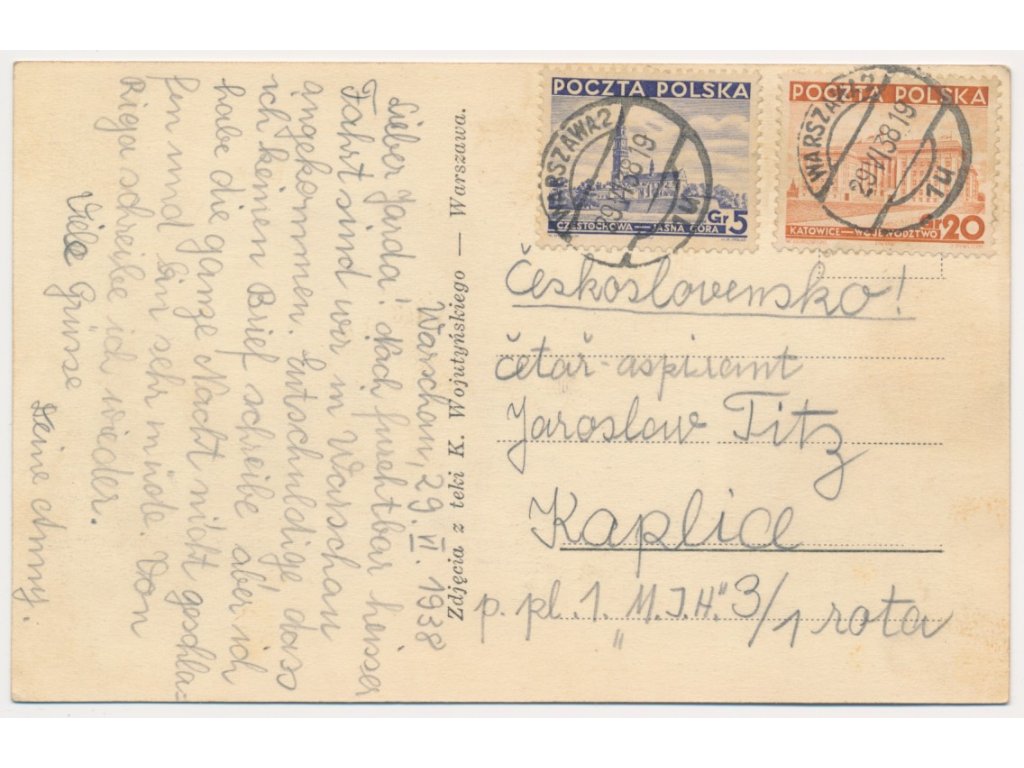 Warschau, 29. VI. 1938
Lieber Jarda! Nach furchtbar heisser
Fahrt sind wir in Warschau
angekommen. Entschuldige dass
ich keinen Brief schreibe aber ich
habe die ganze Nacht nicht geschla=
fen und bin sehr müde. Von
Riega schreibe ich wieder.
Viele Grüsse
Deine Anny.
Zdjęcia z teki K. Wojutyńskiego — Warszawa.
POCZTA POLSKA
Gr 5
CZĘSTOCHOWA—JASNA GÓRA
WARSZAWA 2
29 VI 38 19
1u
POCZTA POLSKA
Gr 20
KATOWICE—WOJEWÓDZTWO
WARSZAWA 2
29 VI 38 19
1u
Československo!
četař-aspirant
Jaroslav Titz
Kaplice
p. pl. 1. "M.J.H." 3/1 rota